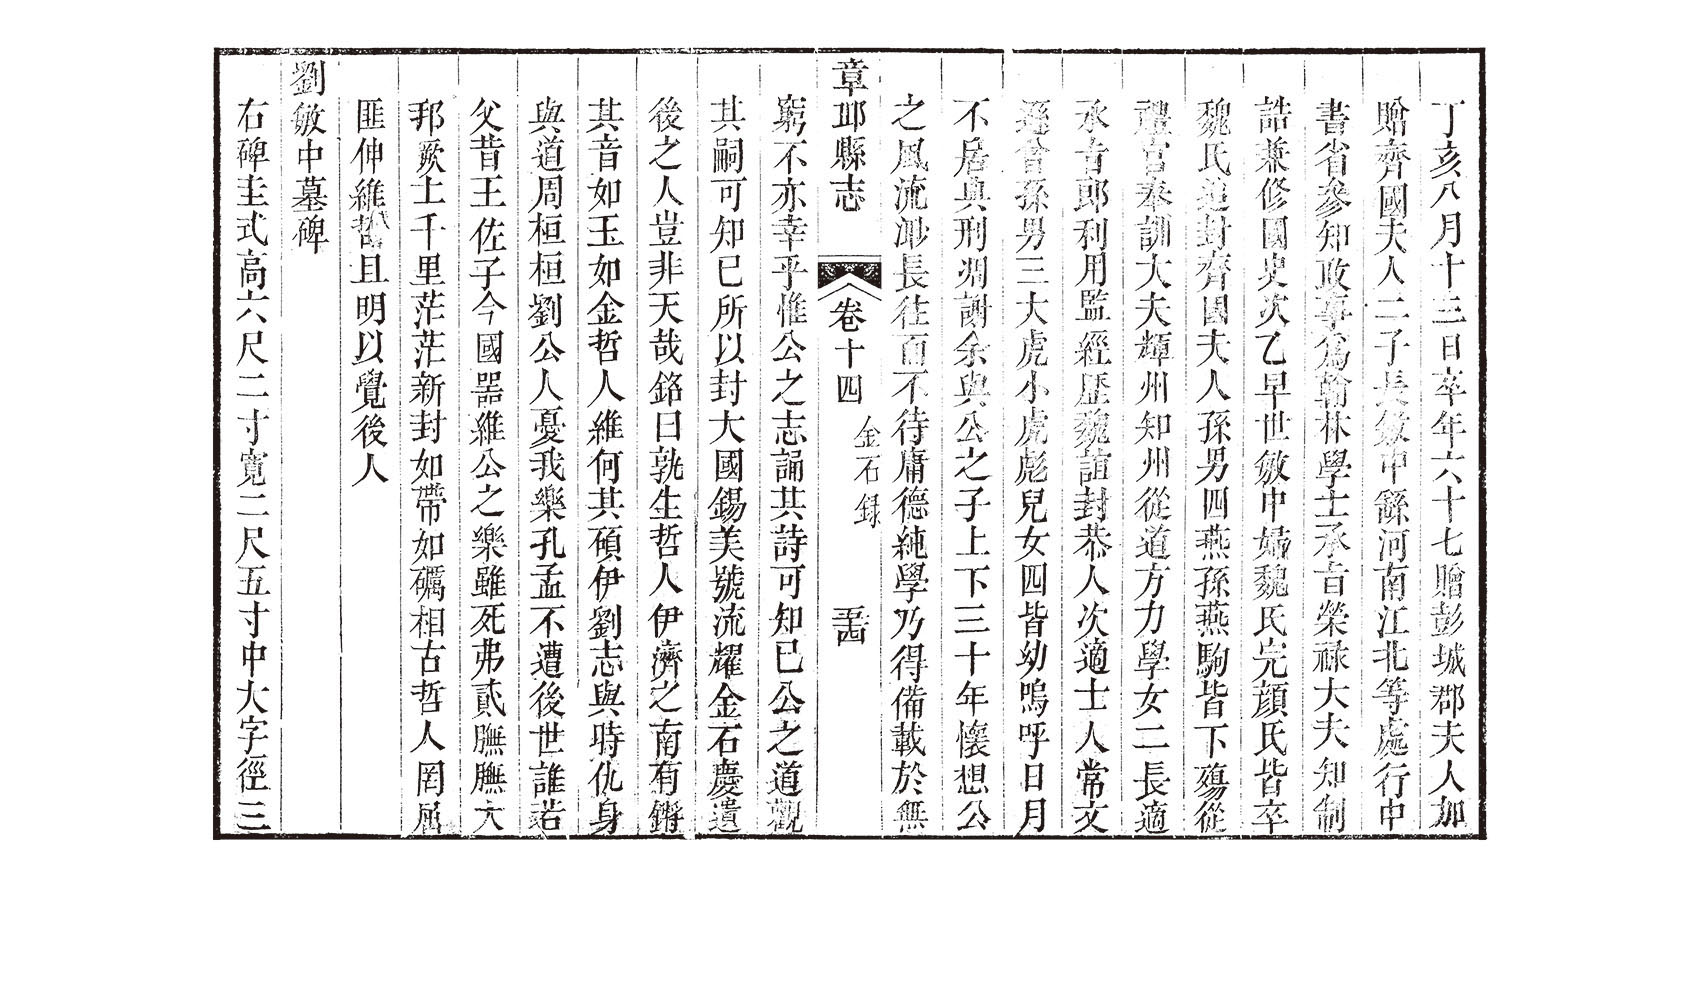 丁亥八月十三日卒年六十七贈彭城郡夫人加
贈齊國夫人二子長敏中繇河南江北等處行中
書省參知政事爲翰林學士承旨榮祿大夫知制
誥兼修國史次乙早世敏中婦魏氏完顏氏皆卒
魏氏追封齊國夫人孫男四燕孫燕駒皆下殤從
禮官奉訓大夫輝州知州從道方力學女二長適
承旨郎利用監經歷魏誼封恭人次適士人常文
遜曾孫男三大虎小虎彪兒女四皆幼嗚呼日月
不居典刑凋謝余與公之子上下三十年懷想公
之風流渺長往而不待庸德純學乃得備載於無
章邱縣志
卷十四
金石録
五十四
窮不亦幸乎惟公之志誦其詩可知已公之道觀
其嗣可知已所以封大國錫美號流耀金石慶遺
後之人豈非天哉銘曰孰生哲人伊濟之南有鏘
其音如玉如金哲人維何其碩伊劉志與時仇身
與道周桓桓劉公人憂我樂孔孟不遭後世誰若
父昔王佐子今國器維公之樂雖死弗貳膴膴大
邦厥土千里茫茫新封如帶如礪相古哲人罔屈
匪伸維哲且明以覺後人
劉敏中墓碑
右碑圭式高六尺二寸寬二尺五寸中大字徑三